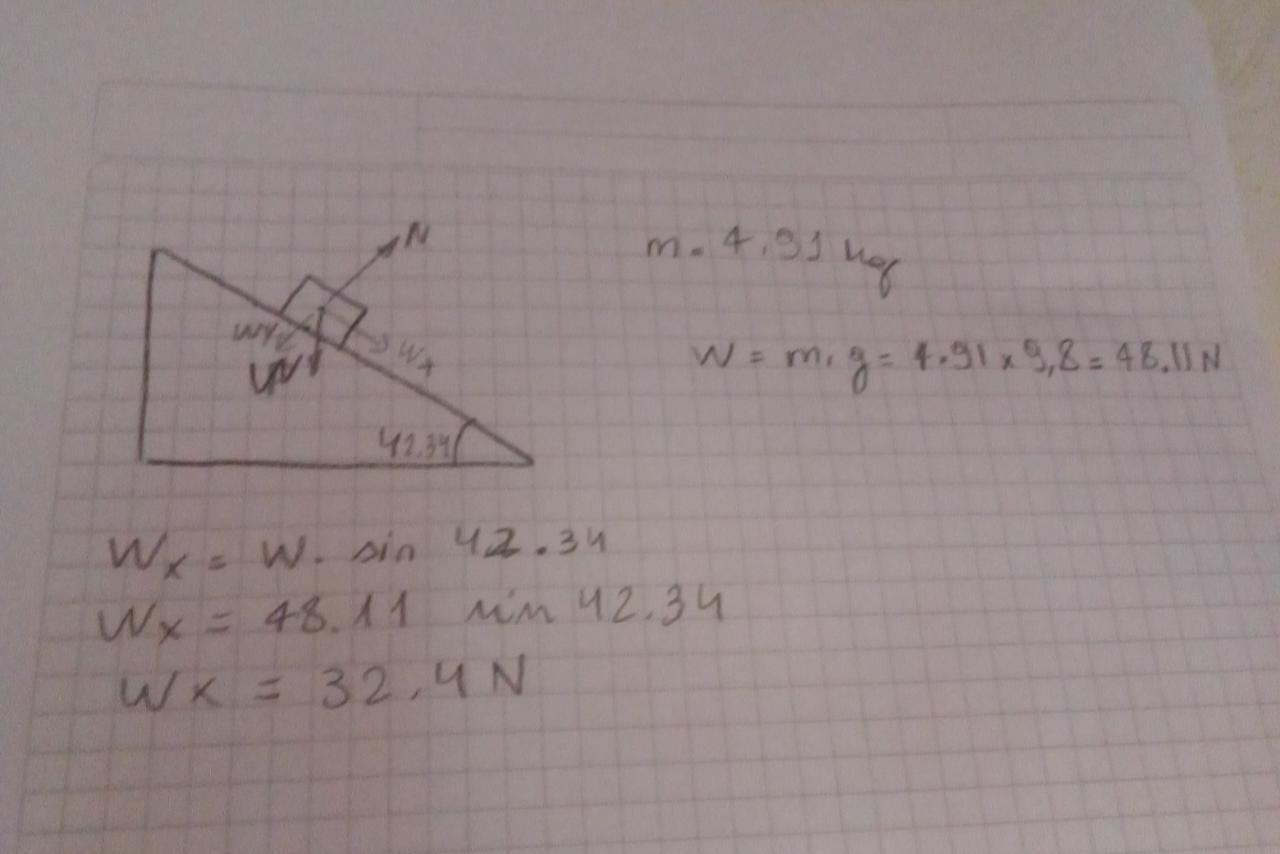 N
m = 4.91 kg
Wy
Wx
W
W = m . g = 4.91 x 9,8 = 48.11 N
42.34
Wx = W . sin 42.34
Wx = 48.11 sin 42.34
Wx = 32.4 N